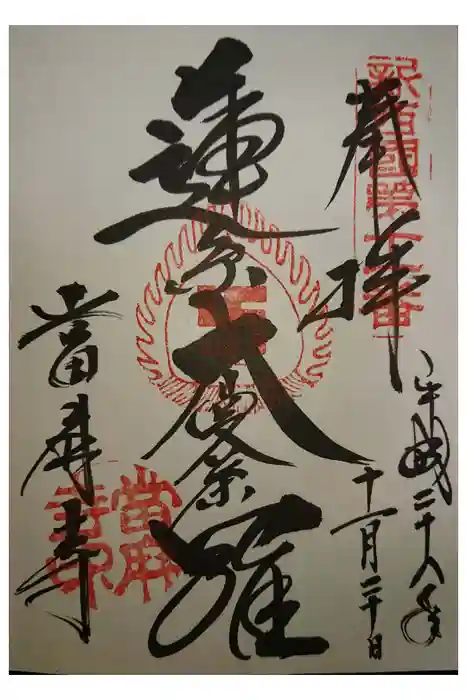 新西國第十一番
奉拝
平成二十八年
十一月二十日
蓮糸大曼荼羅
當麻寺
當麻寺印